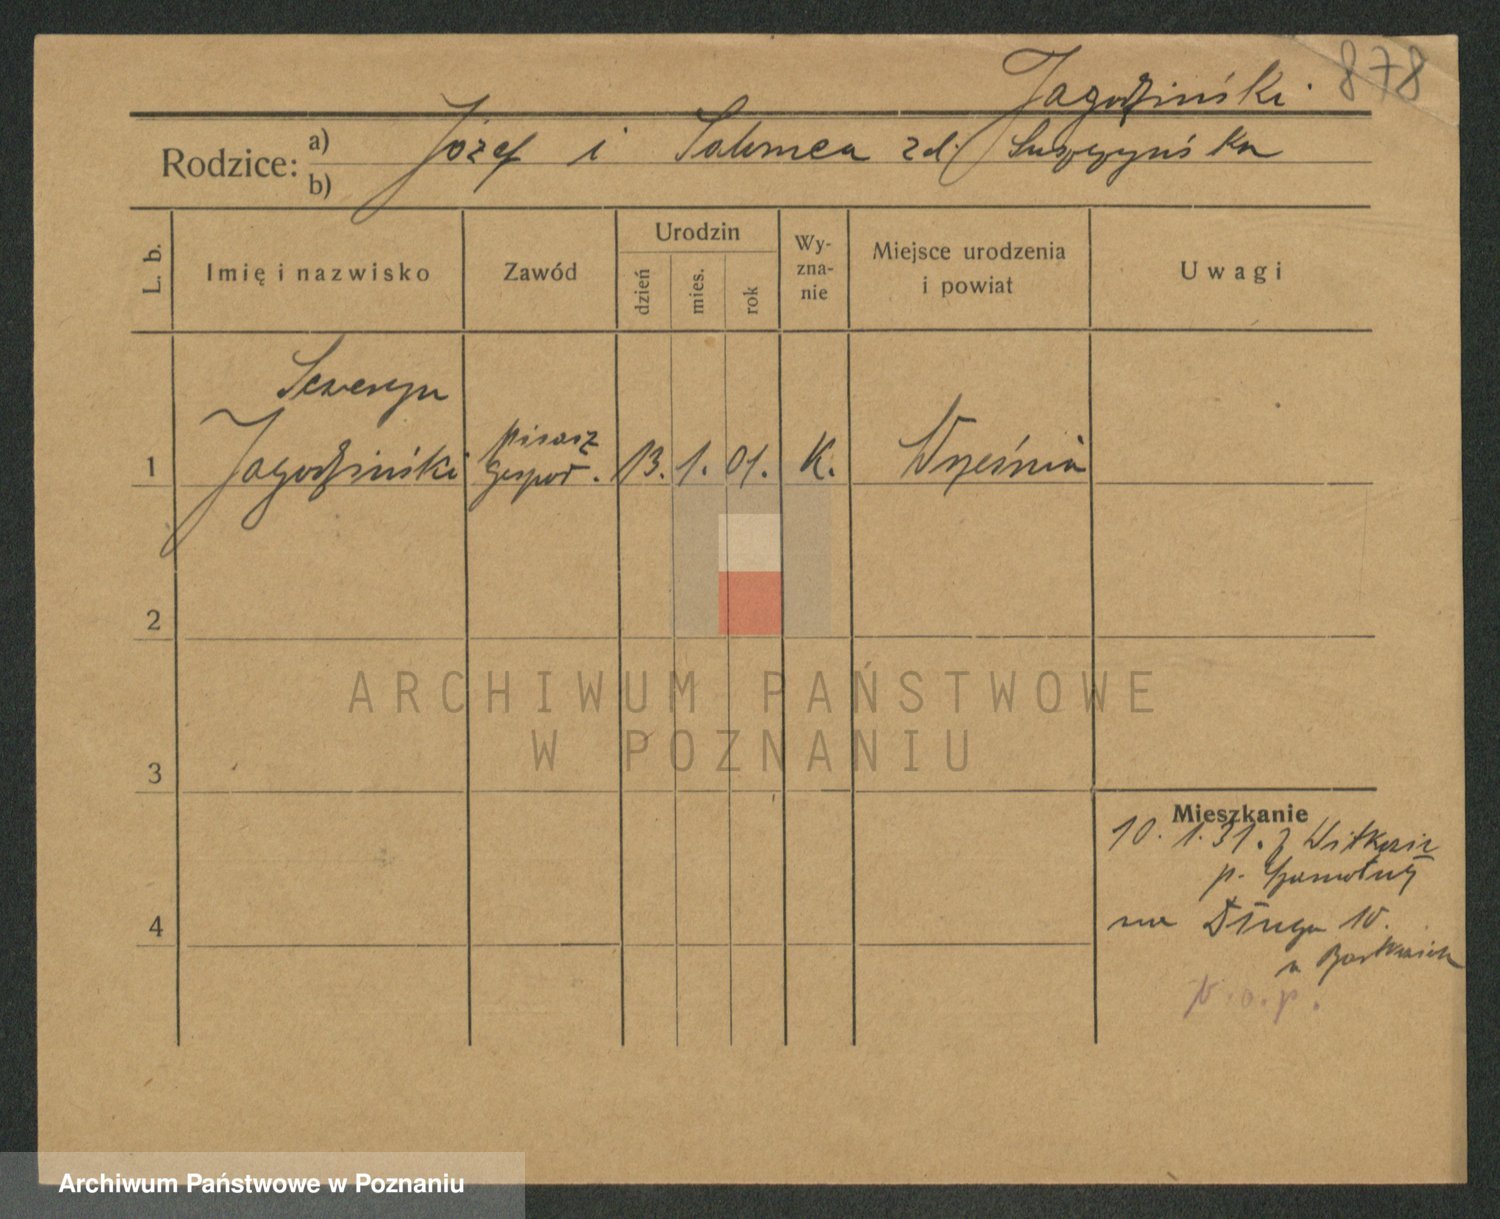 878
Jagodziński
Rodzice: a) Józef i Salomea zd. Suszyńska
b)
L. b. Imię i nazwisko Zawód Urodzin dzień mies. rok Wy-zna-nie Miejsce urodzenia i powiat Uwagi
Seweryn
1 Jagodziński pisarz gospod. 13. 1. 01. K. Września
2
3
4
Mieszkanie
10. 1. 31. z
p. Szamotuły
na Długa 10.
u
V. o. p.
ARCHIWUM PAŃSTWOWE
W POZNANIU
Archiwum Państwowe w Poznaniu